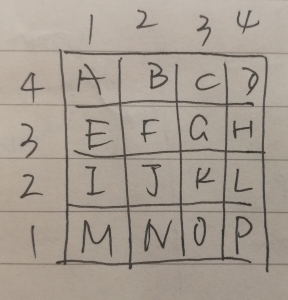 1 2 3 4
4 A B C D
3 E F G H
2 I J K L
1 M N O P